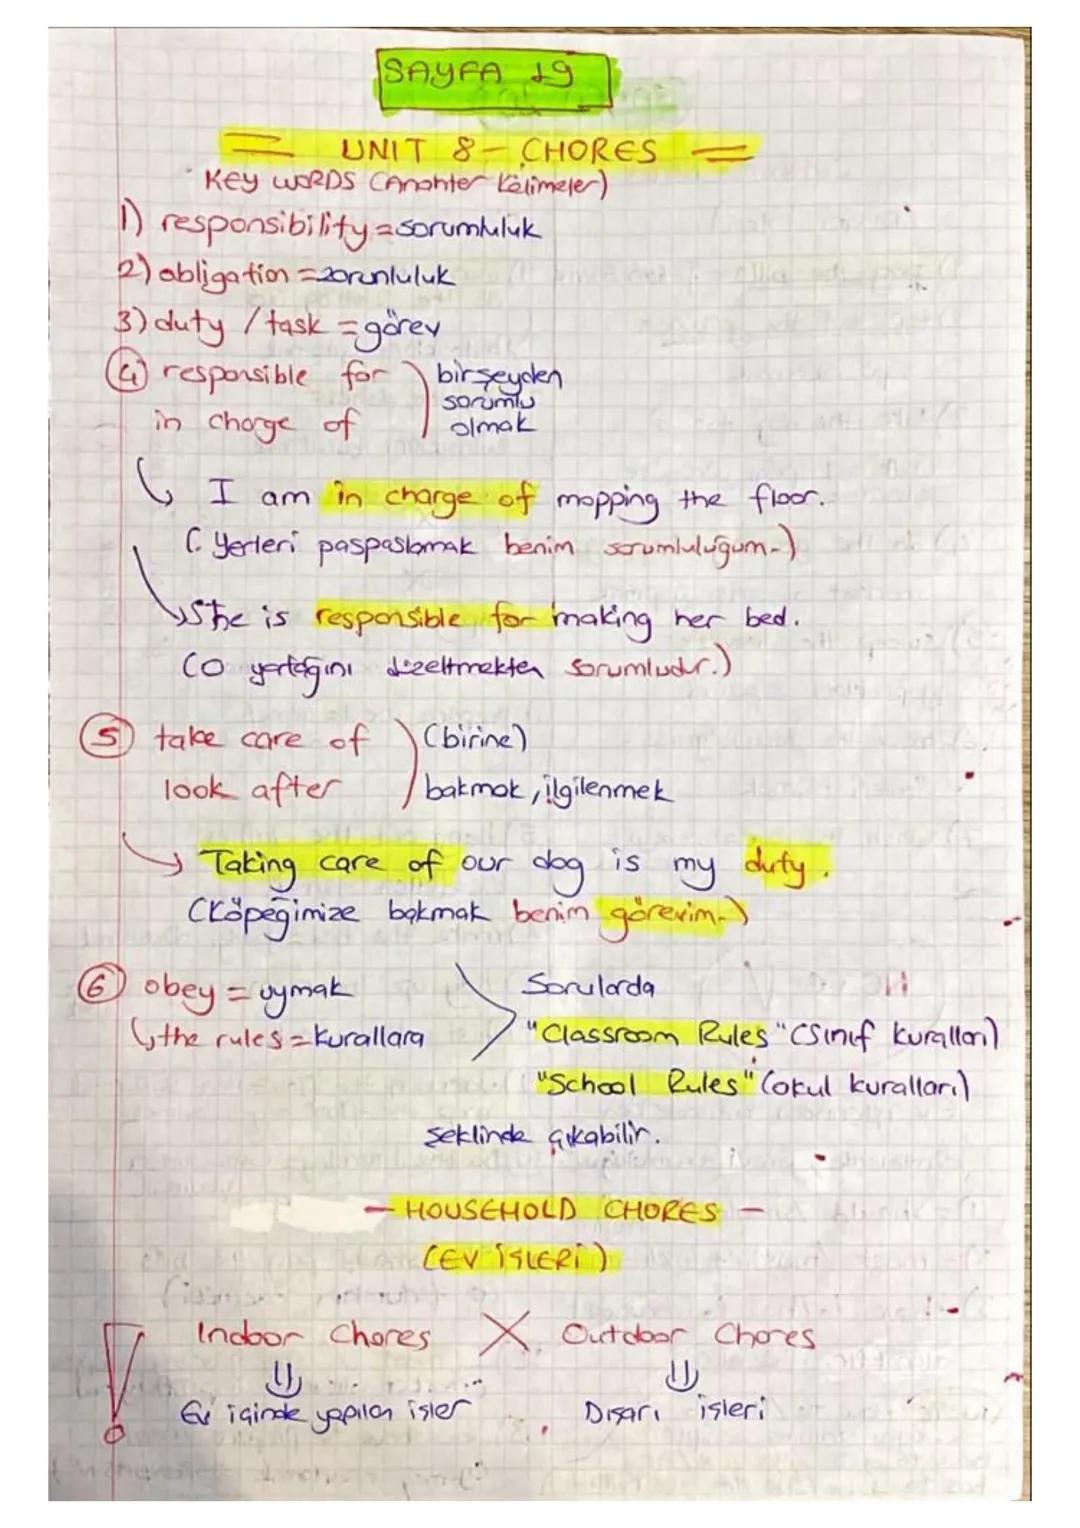 SAYFA 19
UNIT 8 - CHORES
KEY WORDS (Anahtar Kelimeler)
1) responsibility = sorumluluk
2) obligation = zorunluluk
3) duty / task = görev
4) responsible for
in charge of
birşeyden
sorumlu
olmak
I am in charge of mopping the floor.
(Yerleri paspaslamak benim sorumluluğum.)
She is responsible for making her bed.
(O yatağını düzeltmekten sorumludur.)
5) take care of
look after
(birine)
bakmak, ilgilenmek
Taking care of our dog is my duty.
(Köpeğimize bakmak benim görevim.)
6) obey = uymak
the rules = kurallara
Sorularda
"Classroom Rules" (Sınıf kuralları)
"School Rules" (okul kuralları)
şeklinde çıkabilir.
- HOUSEHOLD CHORES -
(EV İŞLERİ)
Indoor Chores X Outdoor Chores
Ev içinde yapılan işler
Dışarı işleri